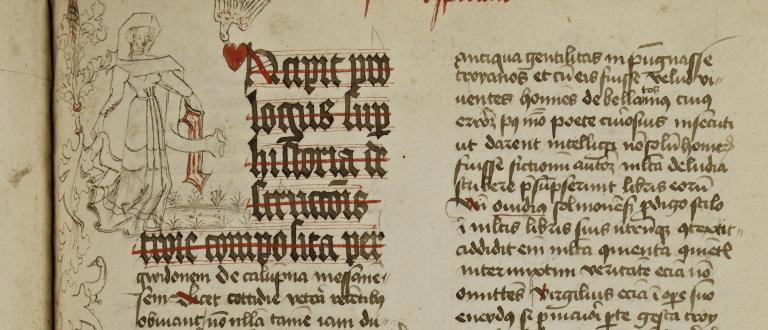 Incipit pro
logus sup
historia de
structiõis
troie composita per
gwidonem de calupna messane
sem Licet cottidie vetera recẽtibus
obruant nõ nulla tamẽ iam du
antiqua gentilitas inpũgnasse
troyanos et cũ eis fuisse velud vi
uentes homĩes debellatos cuius
errorẽ pꝰ mõ poete curiosius insecuti
ut darent intelligi nõ solũ homerũ
fuisse fictionũ auctorẽ mĩta deludia
scribere p̃sũpserunt libris eorũ
Vñ ouidius solmonẽsis ꝓdigo stilo
ĩ mĩtis libris suis utrũqꝫ cõtexit
addidit eñ mĩta quiuenta quietẽ
intermixtim veritate ecia nõ
omittens Virgilius ecia ĩ oꝑe suo
eneydos si p̃ maiori ꝑte gesta troy